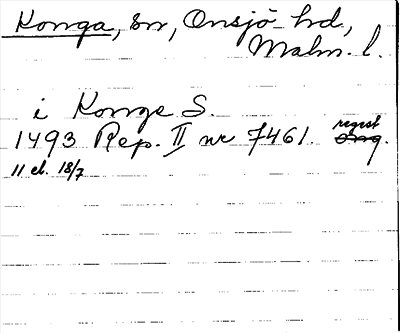 Konga, sn, Onsjö hd,
Malm. l.
i Konge S.
1493 Rep. II nr 7461. regest
11 el. 18/7